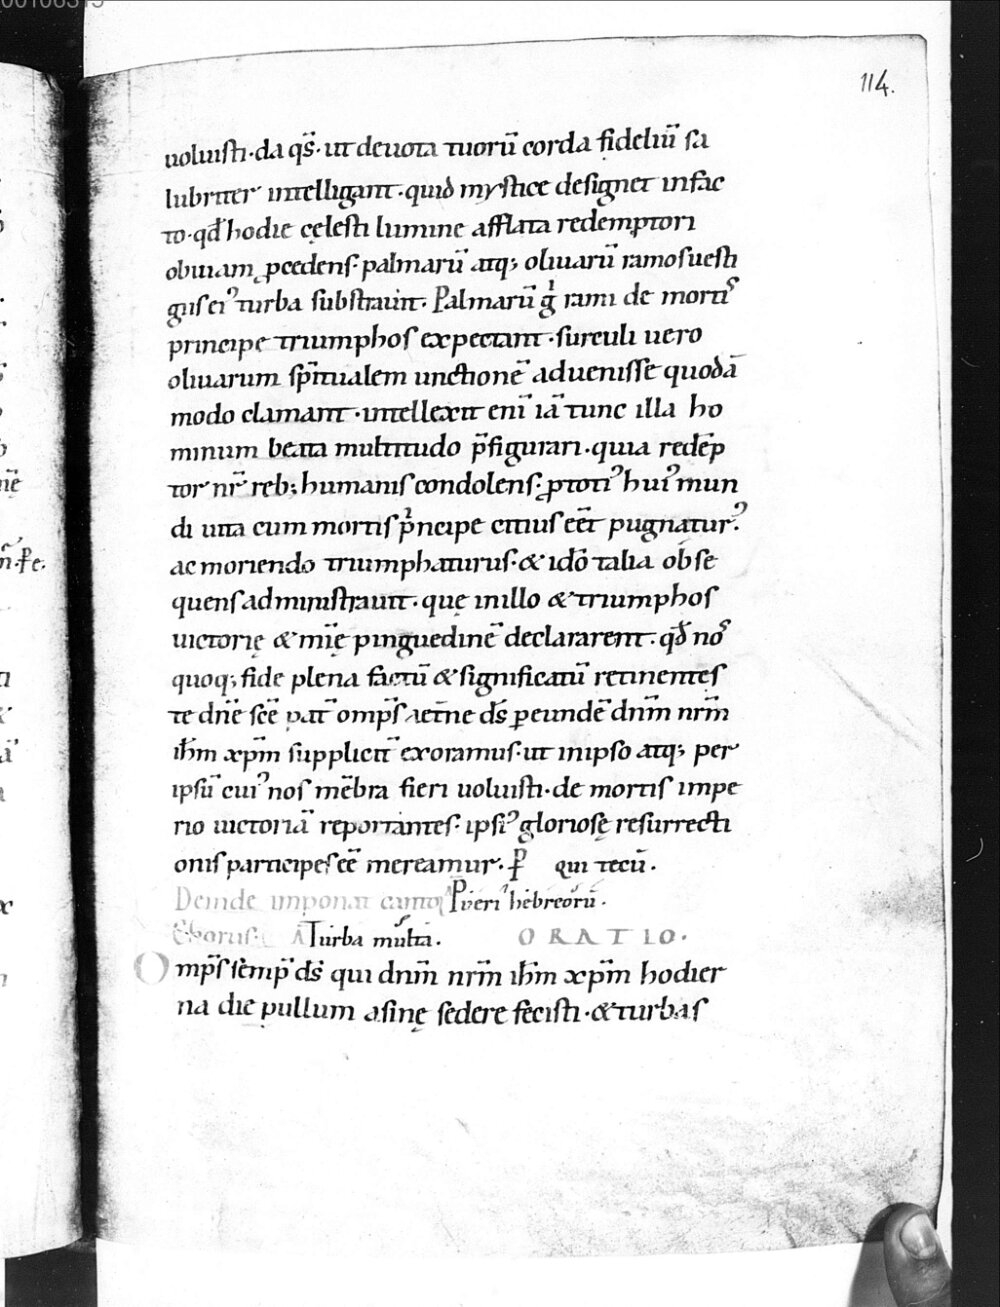 114.
uoluisti·da qs̄·ut deuota tuorū corda fideliū sa
lubriter intelligant·quid mystice designet infac
to·qđ hodie cęlesti lumine afflata redemptori
obuiam ꝓcedens·palmarū atq; oliuarū ramos uesti
giis ei᾿ turba substrauit. Palmarū g̍ rami de morti᾿
principe triumphos expectant·surculi uero
oliuarum spī̄tualem unctionē aduenisse quodā
modo clamant·intellexit eni̅ iā tunc illa ho
minum beata multitudo p̄figurari·quia redēp
tor nr̄ reb; humanis condolens·ꝓ toti᾿ hui᾿ mun
di uita cum mortis p̍ncipe citius eēt pugnatur᾿
ac moriendo triumphaturus·& idō talia obse
quens administrauit·quę inillo & triumphos
uictorię & mīę pinguedinē declararent·qđ no᾿
quoq; fide plena factū & significatū retinentes
te dn̄e sc̄e pat̄ omps̄ aet̄ne ds̄ ꝑeundē dn̄m nr̄m
ih̄m xp̄m supplicit̄ exoramus·ut inipso atq; per
ipsū cui᾿ nos mēbra fieri uoluisti·de mortis impe
rio uictoriā reportantes·ipsi᾿ gloriosę resurrecti
onis participes eē mereamur. P̄ qui tecū.
Deinde inponat Pueri hebreorū.
Chorus. A Turba multa. ORATIO.
Omps̄ semp̄ ds̄ qui dn̄m nr̄m ih̄m xp̄m hodier
na die pullum asinę sedere fecisti·& turbas